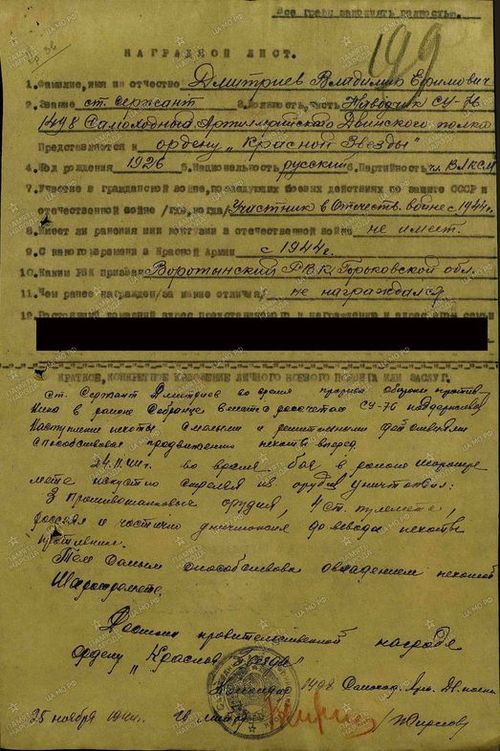 Все графы заполнять полностью.
199
НАГРАДНОЙ ЛИСТ.
1. Фамилие, имя и отчество Дмитриев Владимир Ефимович
2. Звание ст. сержант 3. Должность, часть Наводчик СУ-76
1498 Самоходный Артиллерийский Двинского полка
Представляется к ордену "Красной Звезды"
4. Год рождения 1926 5. Национальность русский 6. Партийность чл. ВЛКСМ
7. Участие в гражданской войне, последующих боевых действиях по защите СССР и
отечественной войне /где, когда/ Участник в Отечеств. войне с 1944 г.
8. Имеет ли ранения или контузии в отечественной войне не имеет.
9. С какого времени в Красной Армии с 1944 г.
10. Каким РВК призван Воротынский РВК, Горьковской обл.
11. Чем ранее награжден /за какие отличия/ не награждался
КРАТКОЕ, КОНКРЕТНОЕ ИЗЛОЖЕНИЕ ЛИЧНОГО БОЕВОГО ПОДВИГА ИЛИ ЗАСЛУГ.
ст. Сержант Дмитриев во время прорыва обороны против
ника в районе Собранце вместе рассчетом СУ-76 поддерживал
наступление пехоты смелыми и решительными действиями
способствовал продвижению пехоты вперед.
24.11.44г. во время боя в районе
искустно стреляя из орудия уничтожил:
3 противотанковых орудия, 4 ст. пулемета,
рассеял и частично уничтожил до взвода пехоты
противника.
Тем самым способствовал овладением пехотой
Достоин правительственной награде
ордену "Красной Звезды"
Командир 1498 Самоход. Арт. Дв. полка
25 ноября 1944г. гв майор /Жирнов/